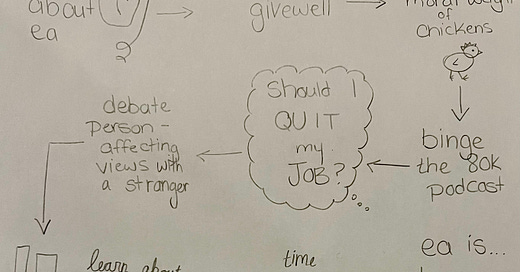 about
ea
givewell
of
chickens
binge
the 80k
podcast
Should I
QUIT
my
JOB?
debate
person-
affecting
views with
a stranger
learn about
time
ea is...